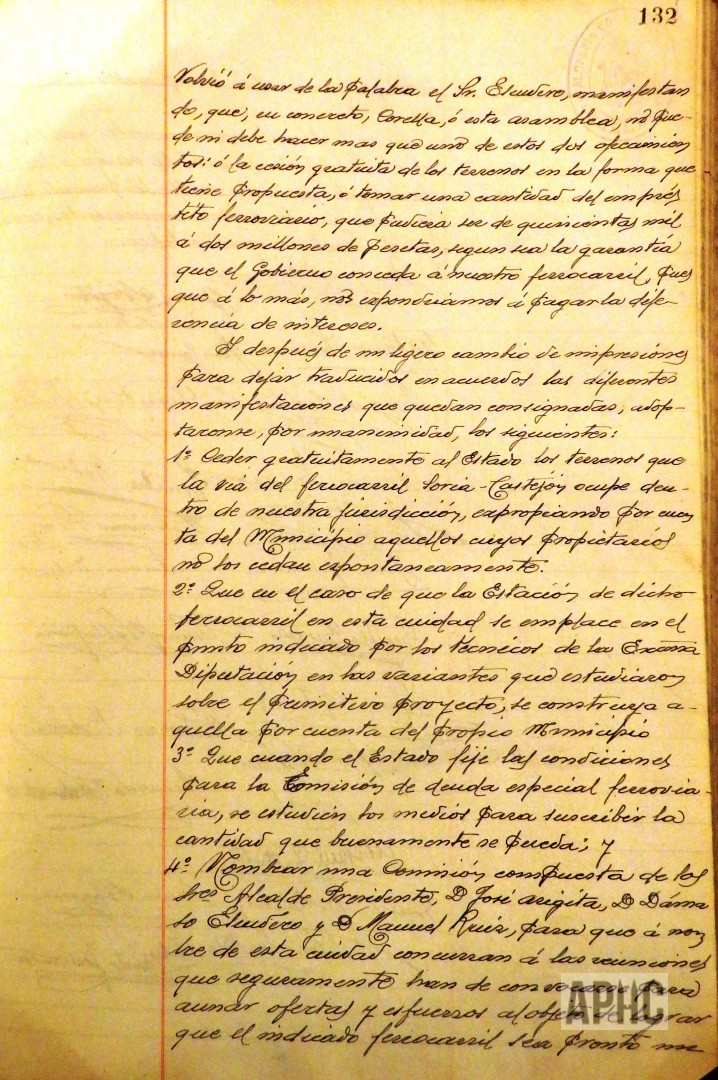 132
Volvió á usar de la palabra el Sr. Escudero, manifestan
do, que, en concreto, Corella, ó esta asamblea, no pue-
de ni debe hacer mas que uno de estos dos ofrecimien
tos: ó la cesión gratuita de los terrenos en la forma que
tiene propuesta, ó tomar una cantidad del emprés
tito ferroviario, que pudiera ser de quinientas mil
á dos millones de pesetas, segun sea la garantía
que el Gobierno conceda á nuestro ferrocarril, pues
que á lo más, nos expondriamos á pagar la dife-
rencia de intereses.
Y después de un ligero cambio de impresiones
para dejar traducidos en acuerdos las diferentes
manifestaciones que quedan consignadas, adop-
taronse, por unanimidad, los siguientes:
1º Ceder gratuitamente al Estado los terrenos que
la vía del ferrocarril Soria-Castejón ocupe den-
tro de nuestra jurisdicción, expropiando por cuen
ta del Municipio aquellos cuyos propietarios
no los cedan expontaneamente.
2º Que en el caso de que la Estación de dicho
ferrocarril en esta ciudad se emplace en el
punto indicado por los técnicos de la Excma
Diputación en las variantes que estudiaron
sobre el primitivo proyecto, se construya a-
quella por cuenta del propio Municipio
3º Que cuando el Estado fije las condiciones
para la Emisión de deuda especial ferrovia-
ria, se estudien los medios para suscribir la
cantidad que buenamente se pueda; y
4º Nombrar una Comisión compuesta de los
Sres Alcalde Presidente, D José Arigita, D Dáma
so Escudero y D Manuel Ruiz, para que á nom
bre de esta ciudad concurran á las reuniones
que seguramente han de convocarse para
aunar ofertas y esfuerzos al objeto de lograr
que el indicado ferrocarril sea pronto un
APHC